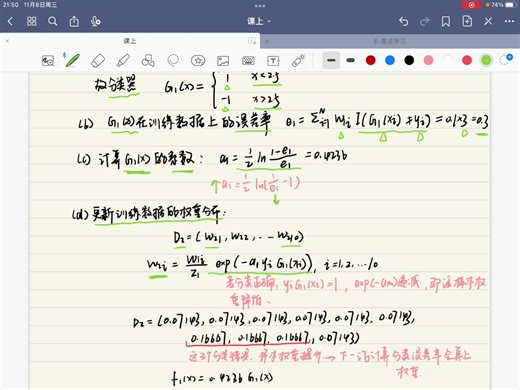 21:50 11月8日周三
74%
课上
课上
6-集成学习
故分类器 G₁(x) = { 1 x<2.5
-1 x>2.5
(b) G₁(x)在训练数据上的误差率 e₁ = Σᵢ₌₁ᴺ w₁ᵢ I(G₁(xᵢ)≠yᵢ) = 0.1×3 = 0.3
(c) 计算G₁(x)的系数: a₁ = ½ ln (1-e₁)/e₁ = 0.4236
↑a₁ = ½ ln(1/e₁ - 1)
(d) 更新训练数据的权重分布:
D₂ = (w₂₁, w₂₂, ... w₂₁₀)
w₂ᵢ = w₁ᵢ/z₁ exp(-a₁yᵢG₁(xᵢ)), i=1,2...10
若分类正确, yᵢG₁(xᵢ)=1, exp(-am)递减, 即该样本权
重降低.
D₂ = (0.07143, 0.07143, 0.07143, 0.07143, 0.07143, 0.07143,
0.1667, 0.1667, 0.1667, 0.07143)
这3个分类错误, 样本权重提升→下一次计算分类误差率会算上
权重.
f₁(x) = 0.4236 G₁(x)